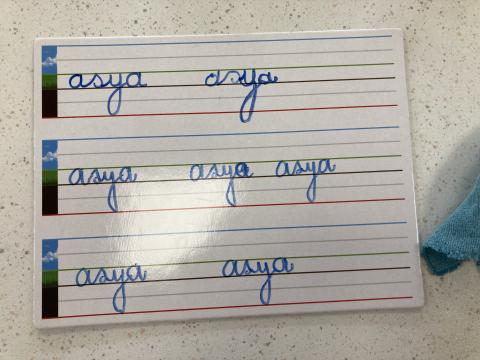 asya asya
asya asya asya
asya asya